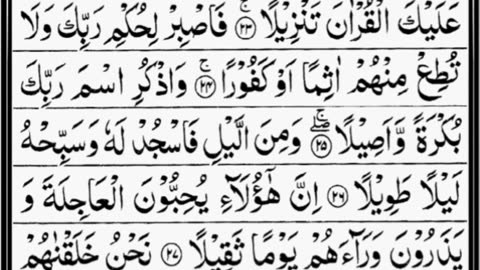 عَلَيْكَ الْقُرْاٰنَ تَنْزِيْلًا ۚ‏﴿۲۳﴾ فَاصْبِرْ لِحُكْمِ رَبِّكَ وَلَا
تُطِعْ مِنْهُمْ اٰثِمًا اَوْ كَفُوْرًا ۚ‏﴿۲۴﴾ وَاذْكُرِ اسْمَ رَبِّكَ
بُكْرَةً وَّاَصِيْلًا ۖۚ‏﴿۲۵﴾ وَمِنَ الَّيْلِ فَاسْجُدْ لَهٗ وَسَبِّحْهُ
لَيْلًا طَوِيْلًا ﴿۲۶﴾ اِنَّ هٰٓؤُلَآءِ يُحِبُّوْنَ الْعَاجِلَةَ وَ
يَذَرُوْنَ وَرَآءَهُمْ يَوْمًا ثَقِيْلًا ﴿۲۷﴾ نَحْنُ خَلَقْنٰهُمْ